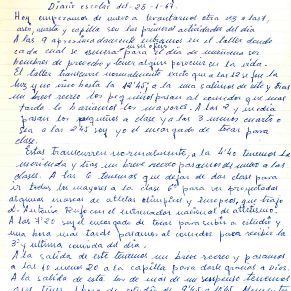 Diario escolar del - 25-1-67.
Hoy empezamos de nuevo a levantarnos otra vez a las
aseo, y capilla son las primeras actividades del día
A las 9 aproximadamente entramos en el taller donde
cada cual se para el día de mañana ser
hombres de provecho y tener algún porvenir en la vida.
El taller transcurre normalmente hasta que a las 12 se fue la
luz y no vino hasta la 12'45, a la una salimos de este y tras
un breve recreo los pequeños pasan al comedor que mas
tarde lo haríamos los mayores. A las 2 y
pasan los pequeños a clase y a las 3 menos cuarto o
sea a las 2'45 soy yo el encargado de tocar para
clase.
Estas transcurren normalmente, a la 4'40 tenemos la
merienda y tras un breve recreo pasamos de nuevo a las
clases. A las 6 tenemos que dejar de dar clase para
ir todos los mayores a la clase 6ª para ver proyectadas
algunas marcas de atletas olímpicos y europeos, que trajo
d. Antonio con el entrenador nacional de atletismo.
A las 7'20 soy el encargado de tocar para subir a estudio y
una hora mas tarde pasamos al comedor para recibir la
3ª y ultima comida del día.
A la salida de este tenemos un breve recreo y pasamos
a las 10 menos 20 a la capilla para darle gracias a Dios.
A la salida de esta los de mas de un suspenso tenemos